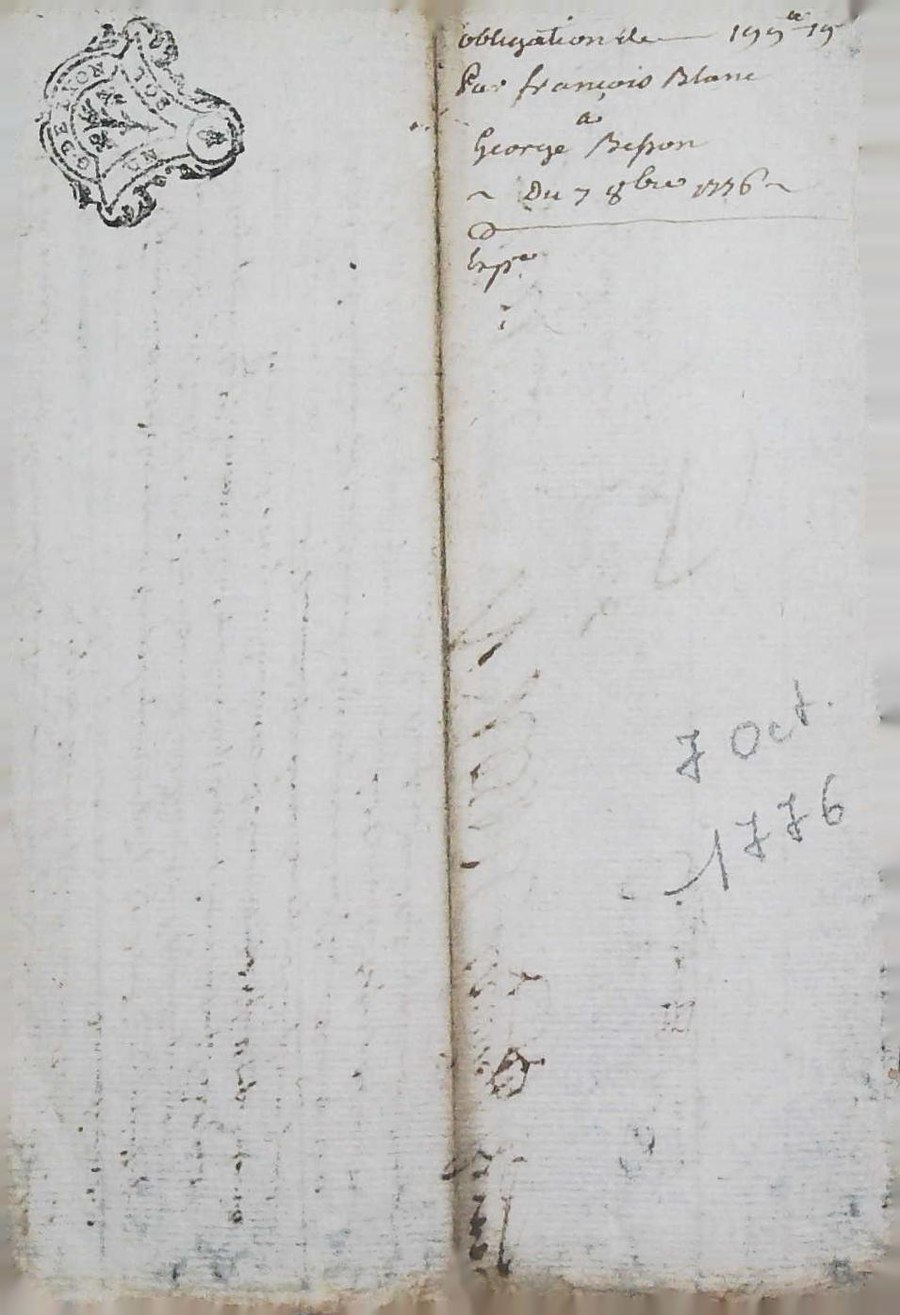 G DE LYON
UN SOL
obligation de
Par françois Blanc
a
George Besson
~ Du 7 8bre 1776 ~
Exp.ée
7 Oct.
1776